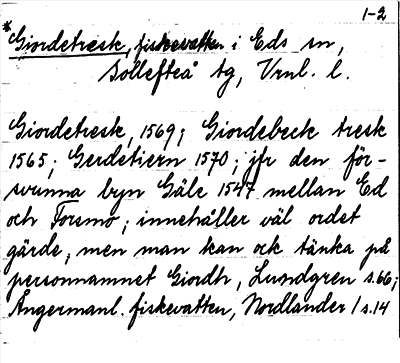 1-2
*Giordetresk, fiskevatten i Eds sn,
Sollefteå tg, Vrnl. l.
Giordetresk, 1569; Giordebeck tresk
1565; Gerdetiern 1570; jfr den för-
svunna byn Gäle 1547 mellan Ed
och Forsmo; innehåller väl ordet
gärde, men man kan ock tänka på
personnamnet Giordh, Lundgren s.66;
Ångermanl. fiskevatten, Nordlander 1 s.14